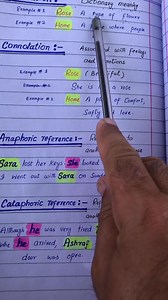 Dictionary meaning
Example # 1 Rose A type of Flower
Example # 2 Home A where people
Connotation:- Associated with feelings
and emotions
Example # 1 Rose (Beautiful)
She is like a rose
Example # 2 Home A place of Comfort,
Safety & love.
Anaphoric reference:-
Sara lost her keys. She looked
I went out with Sara on Sunday
Cataphoric reference:-
Although he was very tired
he arrived, Ashraf
door was open.